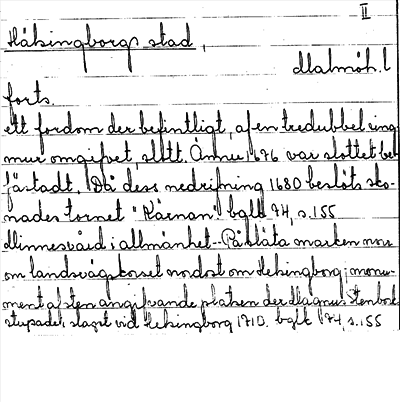 II
Hälsingborgs stad,
Malmöh. l
forts.
ett fordom der befintligt, af en tredubbel ring
mur omgifvet, slott. Ännu 1676 var slottet bе
fästadt. Då dess nedrifning 1680 beslöts sko-
nades tornet "Kärnan" bglk 74, s. 155
Minnesvård i allmänhet.- På släta marken norr
om landsvägskorset nordost om Helsingborg; monu-
ment af sten angifvande platsen der Magnus Stenbock
stupade i slaget vid Helsingborg 1710. bglk 74, s. 155